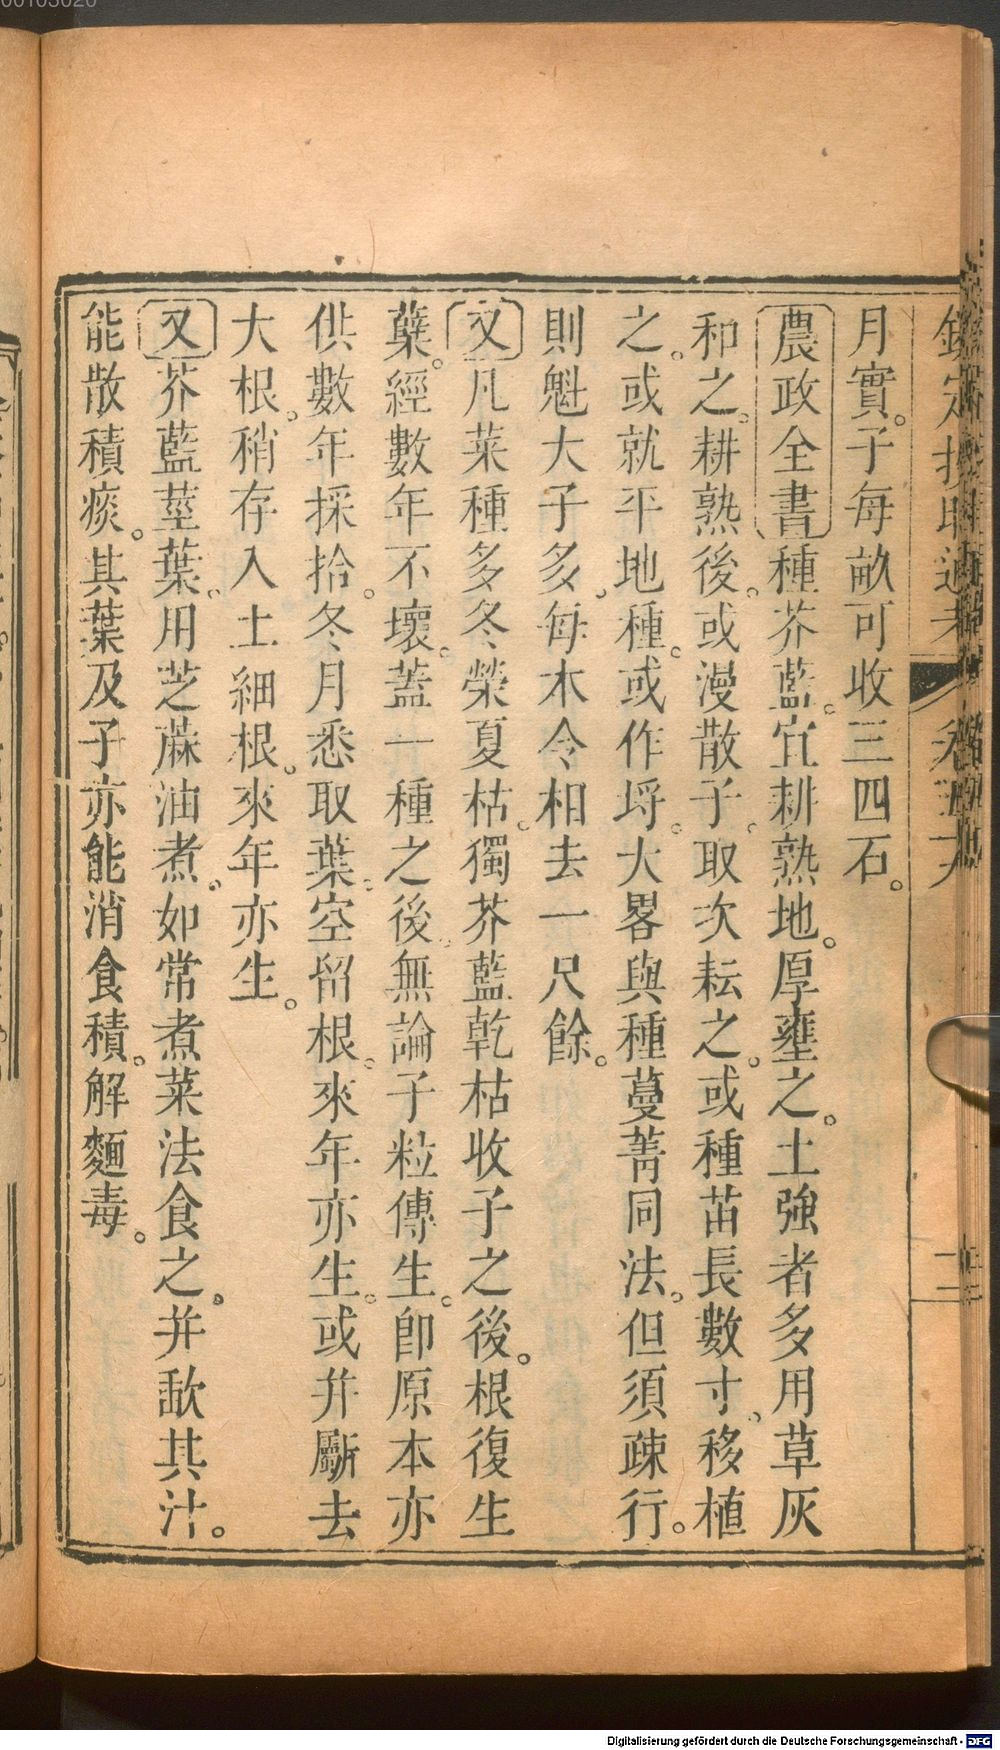 00103020
欽定授時通考 卷五十九
月實。子每畝可收三四石。
農政全書種芥藍。宜耕熟地。厚壅之。土強者多用草灰
和之。耕熟後。或漫散子。取次耘之。或種苗長數寸。移植
之。或就平地種。或作埒。大畧與種蔓菁同法。但須疎行。
則魁大子多。每木令相去一尺餘。
又凡菜種多冬榮夏枯。獨芥藍乾枯收子之後。根復生
蘖。經數年不壞。蓋一種之後。無論子粒傳生。卽原本亦
供數年採拾。冬月悉取葉。空留根。來年亦生。或幷斸去
大根。稍存入土細根。來年亦生。
又芥藍莖葉。用芝蔴油煮。如常煮菜法食之。幷歃其汁。
能散積痰。其葉及子亦能消食積。解麵毒。
Digitalisierung gefördert durch die Deutsche Forschungsgemeinschaft - DFG